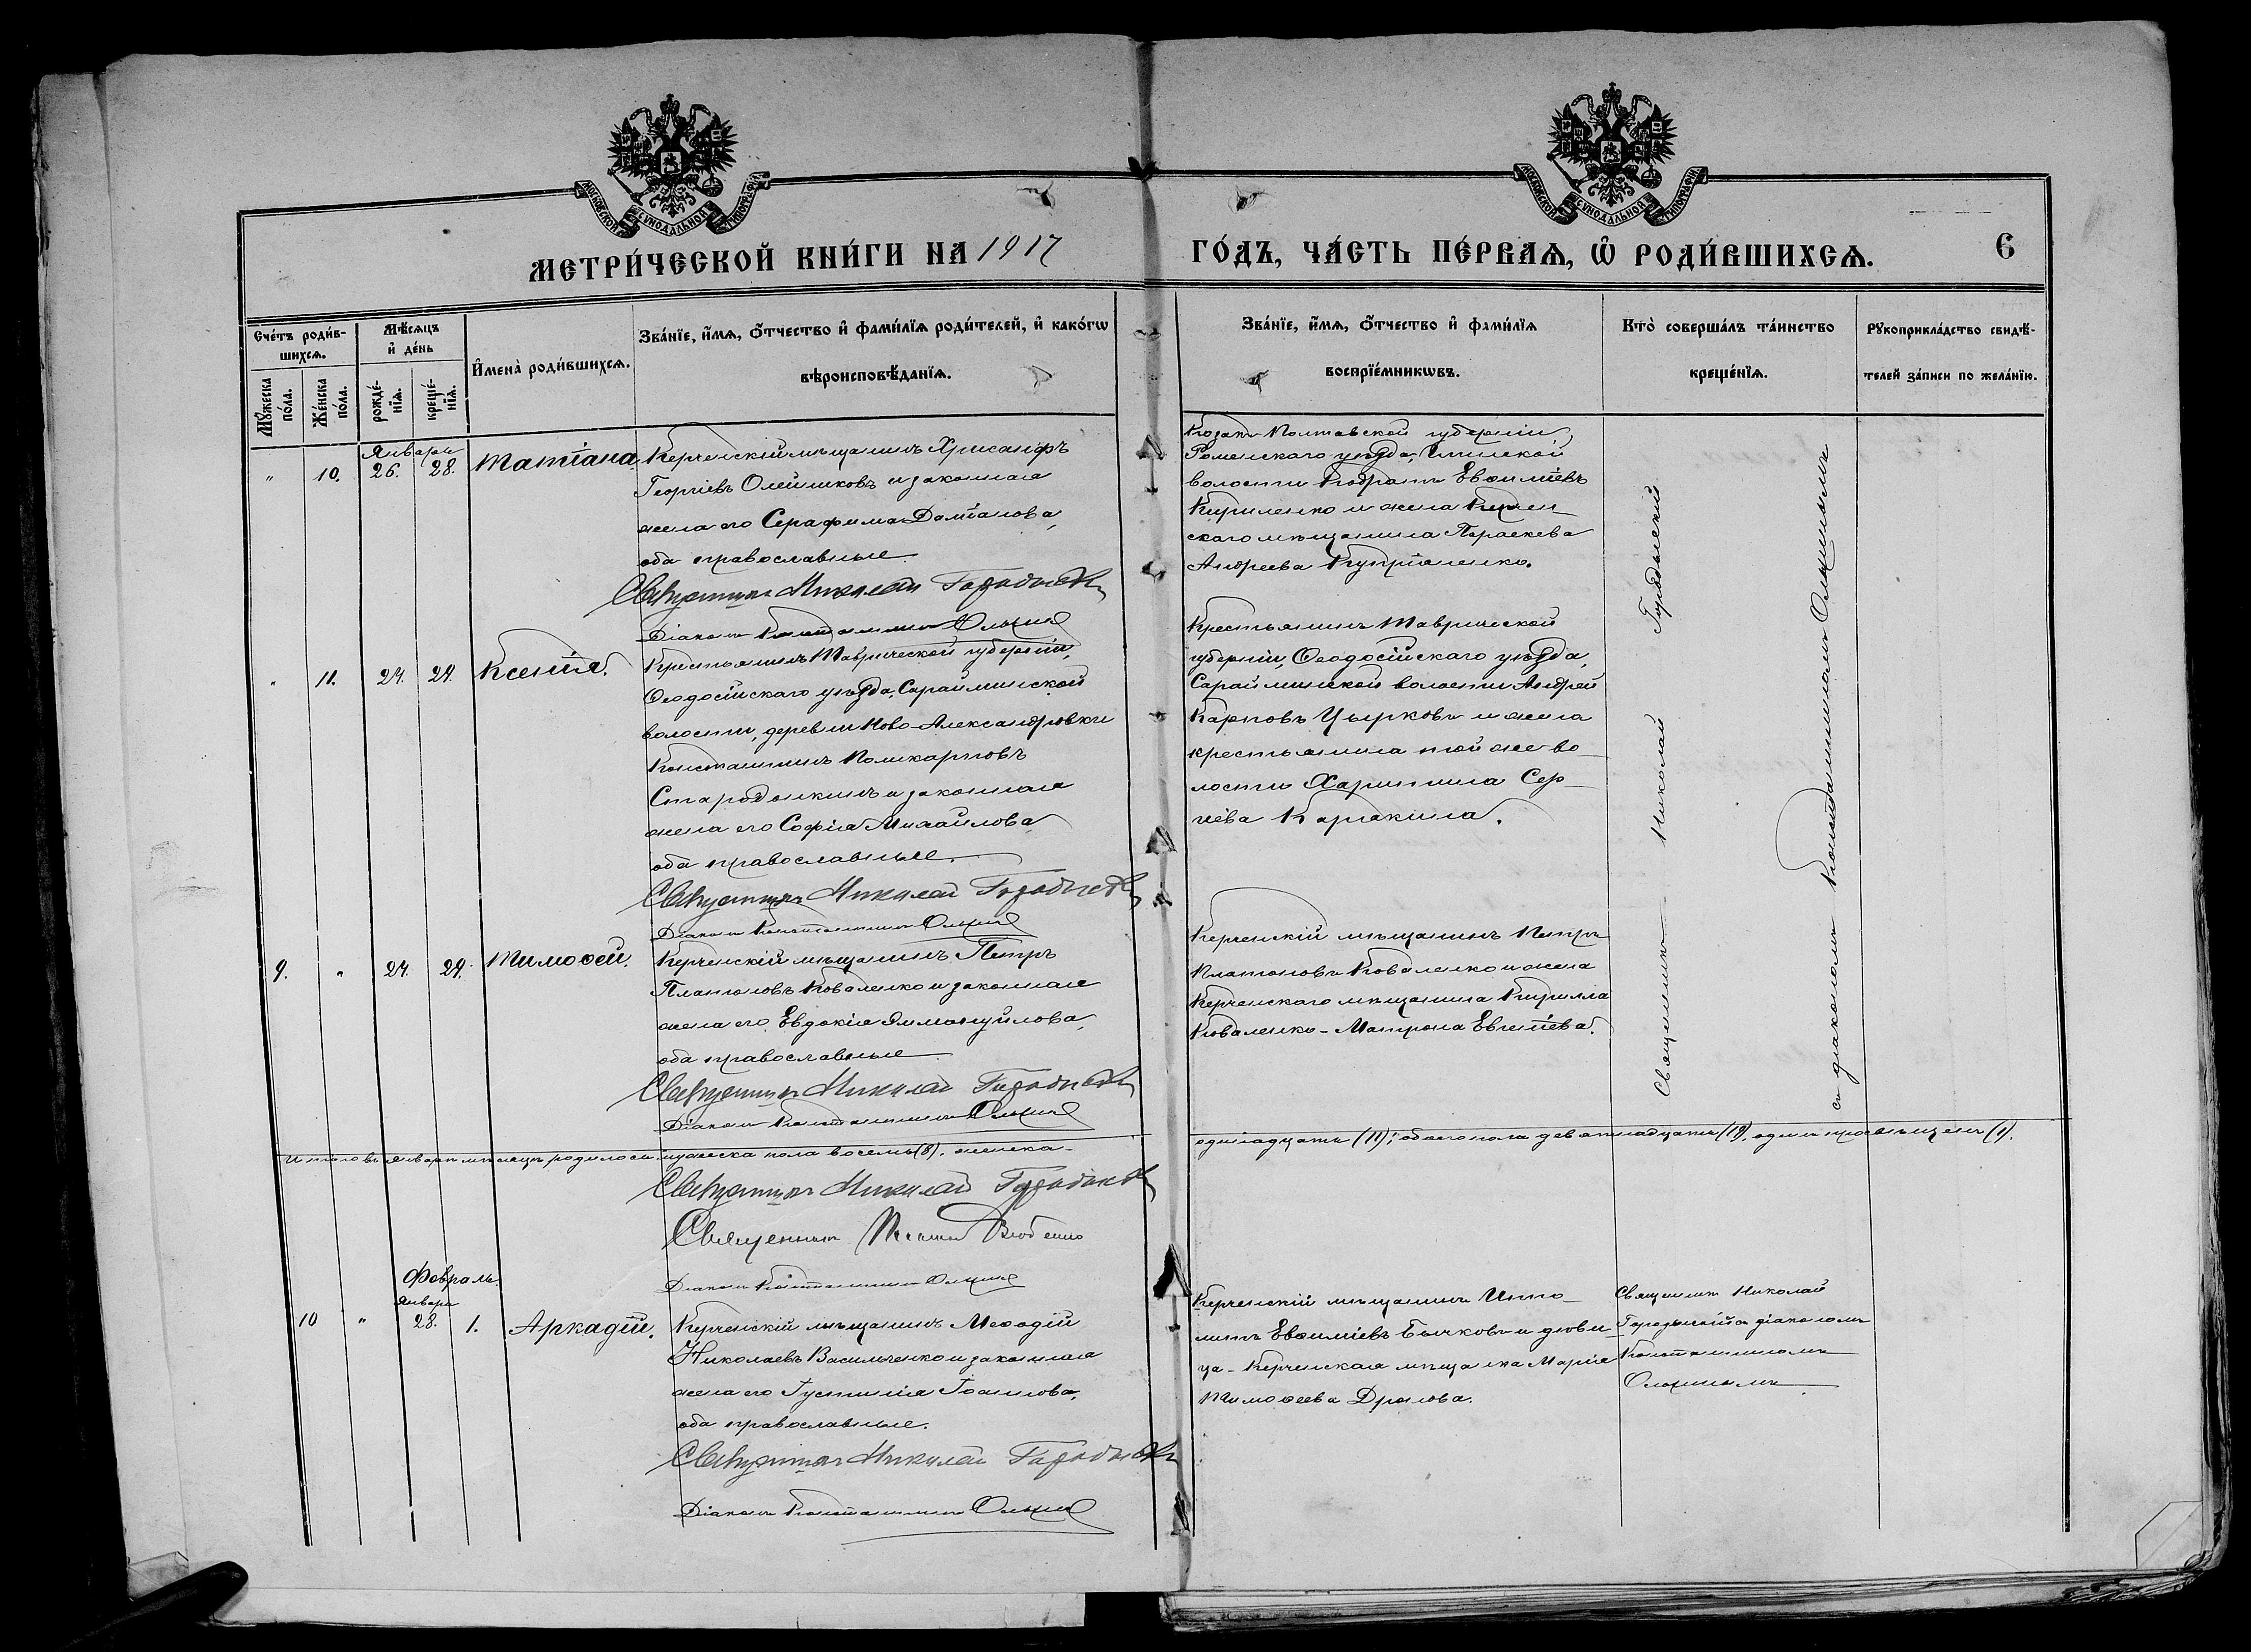 МОСКОВСКОЙ СѴНОДАЛЬНОЙ ТИПОГРАФІИ
МОСКОВСКОЙ СѴНОДАЛЬНОЙ ТИПОГРАФІИ
МЕТРИ́ЧЕСКОЙ КНИ́ГИ НА 1917
ГО́ДЪ, ЧА́СТЬ ПЕ́РВАѦ, Ѡ҆ РОДИ́ВШИХСѦ.
6
Сче́тъ роди́в-
шихсѧ.
Мꙋ́жеска по́ла.
Же́нска по́ла.
Мѣ́сѧцъ
и҆ де́нь
рожде́-
нїѧ.
креще́-
нїѧ.
И҆мена̀ роди́вшихсѧ.
Зва́нїе, и҆́мѧ, ѻ҆́тчество и҆ фами́лїѧ роди́телей, и҆ како́гѡ
вѣроисповѣ́данїѧ.
Зва́нїе, и҆́мѧ, ѻ҆́тчество и҆ фами́лїѧ
воспрїе́мникѡвъ.
Кто̀ соверша́лъ та́инство
креще́нїѧ.
Рꙋкоприкла́дство свидѣ́-
телей за́писи по жела́нїю.
Января
" 10. 26. 28. Татіана
Керченскій мѣщанинъ Хрисанфъ
Георгіевъ Олейниковъ и законная
жена его Серафима Даміанова,
оба православные.
Священникъ Николай
Діаконъ Константинъ
Козакъ Полтавской губерніи,
Роменскаго уѣзда,
волости Кодратъ Евѳиміевъ
Кириленко и жена Керчен
скаго мѣщанина Параскева
Андреева Купріяненко.
" 11. 24. 29. Ксенія.
Крестьянинъ Таврической губерніи,
Ѳеодосійскаго уѣзда, Сарайминской
волости, деревни Ново-Александровки
Константинъ Поликарповъ
и законная
жена его Софія Михайлова,
оба православные.
Священникъ Николай
Діаконъ Константинъ
Крестьянинъ Таврической
губерніи, Ѳеодосійскаго уѣзда,
Сарайминской волости Андрей
Карповъ Цырковъ и жена
крестьянина той же во-
лости Харитина Сер-
гіева
9. " 24. 29. Тимоѳей.
Керченскій мѣщанинъ Петръ
Платоновъ Коваленко и законная
жена его Евдокія Эммануйлова,
оба православные
Священникъ Николай
Діаконъ Константинъ
Керченскій мѣщанинъ Петръ
Платоновъ Коваленко и жена
Керченскаго мѣщанина Кирилла
Коваленко - Матрона Евгеніева.
Священникъ Николай
съ діакономъ Константиномъ
Итого въ январѣ мѣсяцѣ родилось мужеска пола восемь (8), женска -
одинадцать (11); обоего пола девятнадцать (19), одинъ просвѣщенъ (1).
Священникъ Николай
Священникъ
Діаконъ Константинъ
Февраль.
Января
10 " 28. 1. Аркадій.
Керченскій мѣщанинъ Меѳодій
Николаевъ Васильченко и законная
жена его Іустинія Іоаннова,
оба православные.
Священникъ Николай
Діаконъ Константинъ
Керченскій мѣщанинъ Иппо-
литъ Евѳиміевъ Бычковъ и дѣви
ца - Керченская мѣщанка Марія
Тимоѳеева
Священникъ Николай
съ діакономъ
Константиномъ